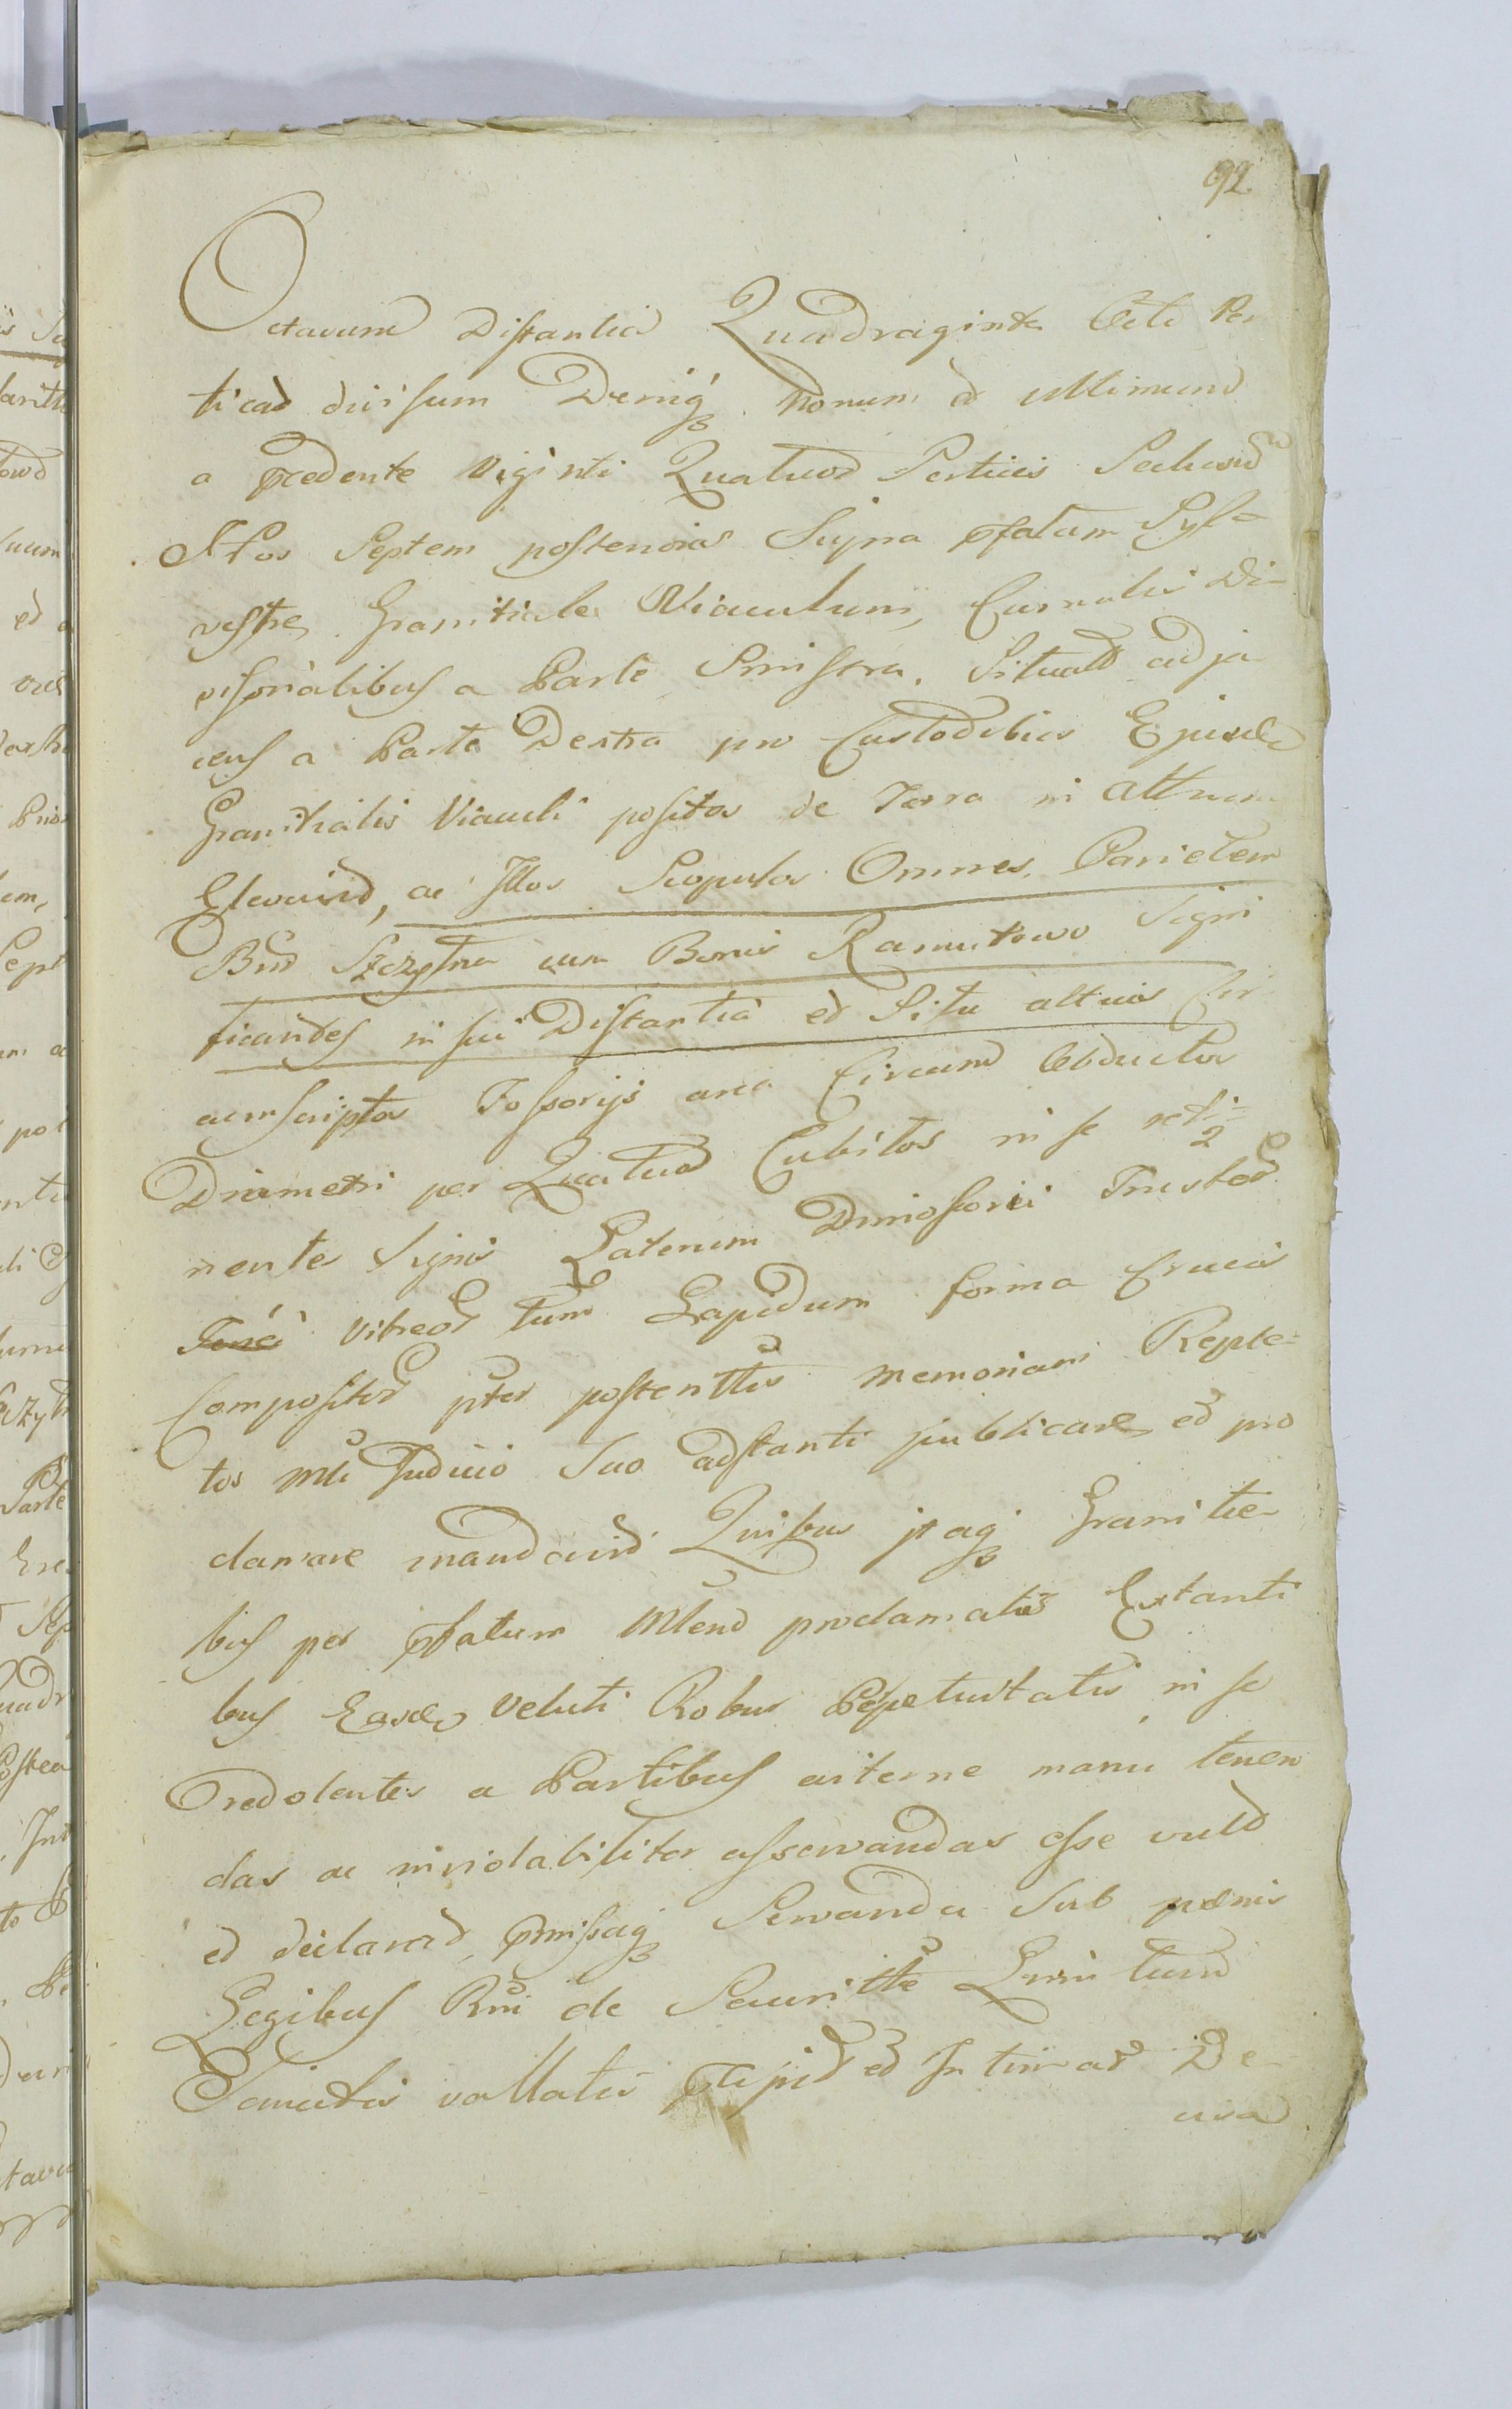 92
Octavum Distantia Quadraginta Octo Per
ticas divisum Deniq nonum et ultimum
a pcedente Viginti Quatuor Perticis
Illos Septem posteriores Supra pfatum Syl=
vestre, Granitiale Viaculum, Curvatis Di-
visorialibus a Parte Sinistra, Situatos adja
cens a Parte Dextra pro Custodibus Ejusd
Granitialis Viaculi positos de Terra in Altum
Elevavit, ac Illos Scopulos Omnes, Parietem
Bnor Szczytno cum Bonis Ramutowo Signi
ficandes in sui Distantia et Situ altius Cir
cumscriptos Fossorijs area Circum Obductos
Diametri per Quatuor Cubitos in se reti=
2
nentes Signis Laterum Frustor
Vitreor tum Lapidum forma Crucis
Composito pter posterittis memoriam Reple=
tos Mli Judicio Suo adstanti publicare, et pro
clamare mandavit Quibus itaq Granitie
bus per pfatum Mlem proclamatis Extanti
bus Easdem veluti Robur Ppetuitatis in se
redolentes a Partibus aeterne manu tenen
das ac inviolabiliter asservandas esse vult
et declarat, pmissaq Servanda Sub paenis
Legibus Rni de Securitte Limitum
Sancitis vallatis pcipit et Intimat De
cusa